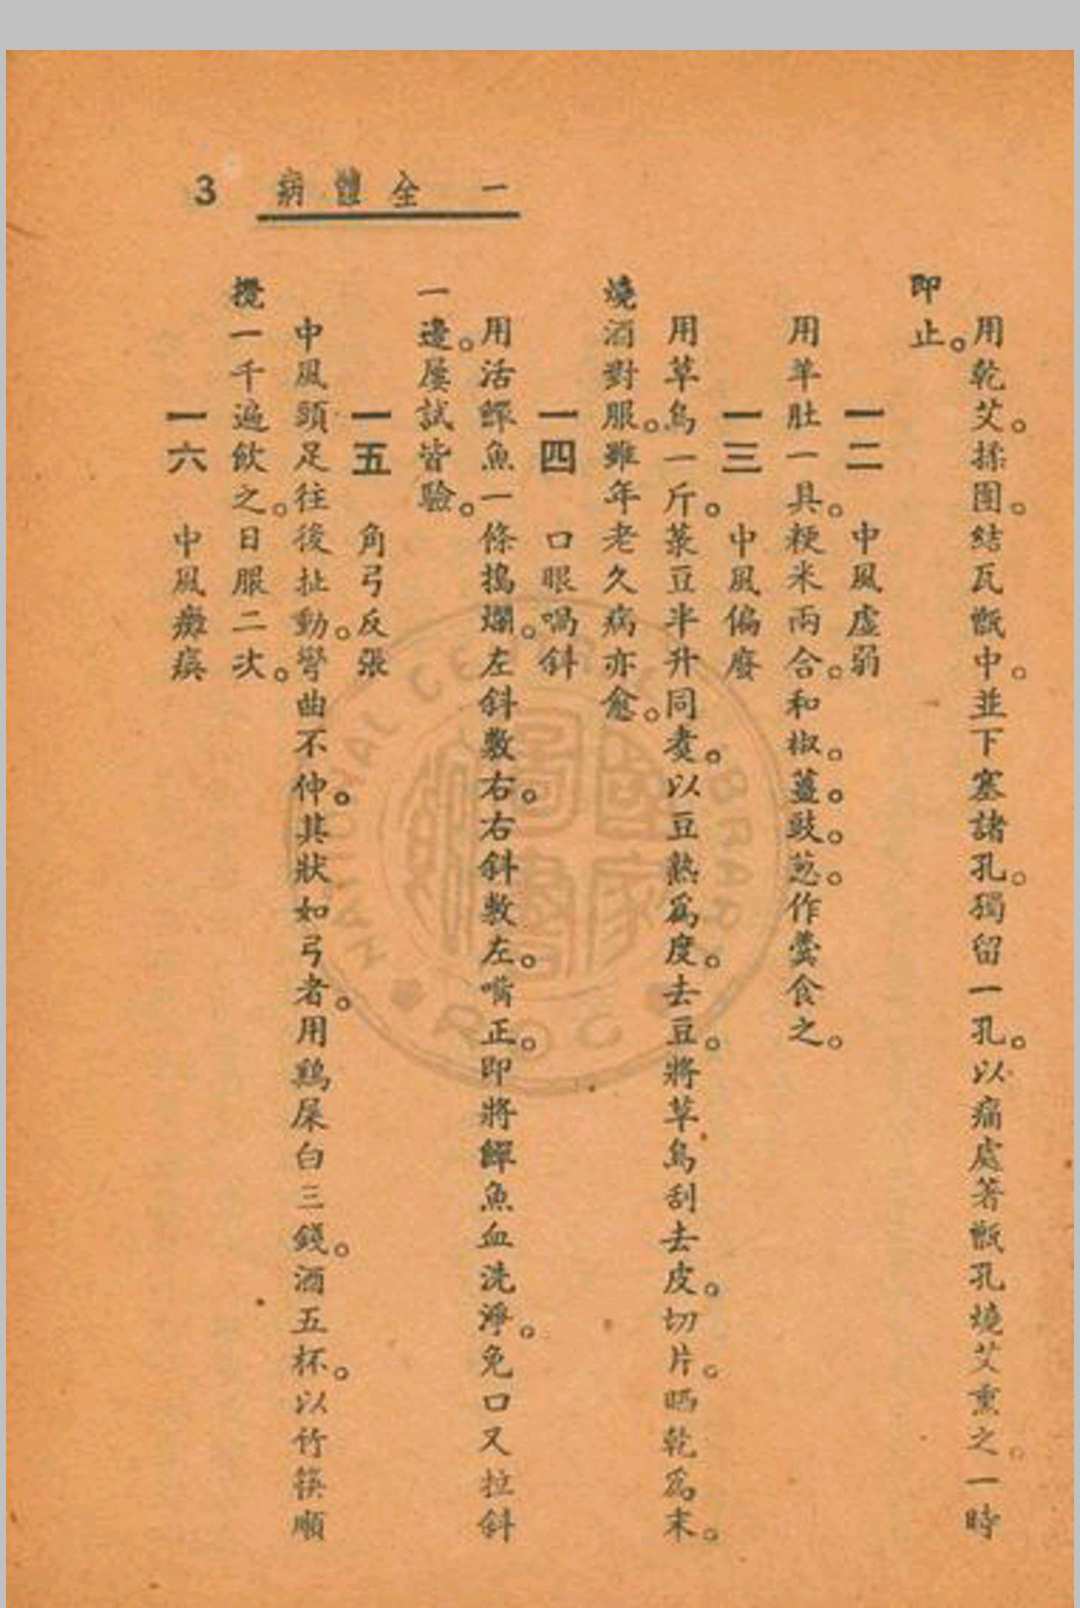 一 全體病 3
用乾艾。揉團。結瓦甑中。並下塞諸孔。獨留一孔。以痛處著甑孔燒艾熏之。一時
即止。
一二 中風虛弱
用羊肚一具。粳米兩合。和椒。薑。豉。葱。作羹食之。
一三 中風偏廢
用草烏一斤。菉豆半升同煑。以豆熟爲度。去豆。將草烏刮去皮。切片。晒乾爲末。
燒酒對服。雖年老久病亦愈。
一四 口眼喎斜
用活鱓魚一條搗爛。左斜敷右。右斜敷左。嘴正。即將鱓魚血洗淨。免口又拉斜
一邊。屢試皆驗。
一五 角弓反張
中風頭足往後扯動。彎曲不伸。其狀如弓者。用鷄屎白三錢。酒五杯。以竹筷順
攪一千遍飲之。日服二次。
一六 中風癱瘓
NATIONAL CENTRAL LIBRARY
ROC
國家圖書